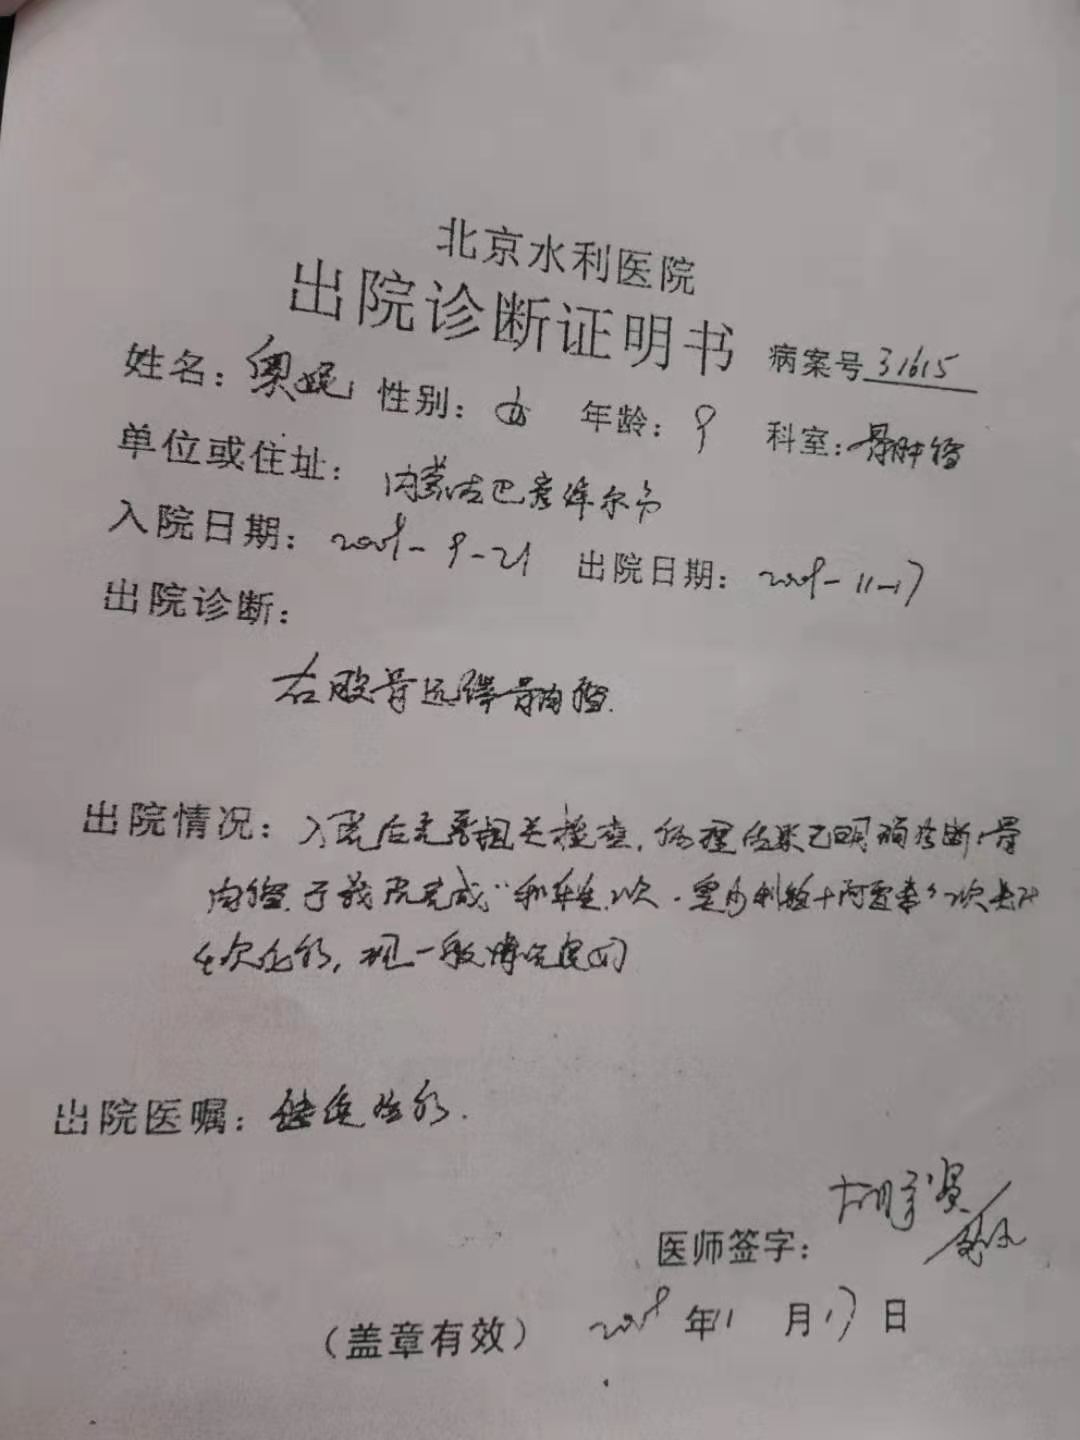 北京水利医院
出院诊断证明书 病案号 31615
姓名： 性别：女 年龄：9 科室：骨肿瘤
单位或住址：内蒙古巴彦淖尔市
入院日期：-9-21 出院日期：-11-17
出院诊断：
右股骨远端骨肉瘤.
出院情况：入院后完善相关检查，病理结果已明确诊断骨
肉瘤.于我院完成
次化疗，现一般情况良好
出院医嘱：继续化疗.
医师签字：
（盖章有效） 年11月17日